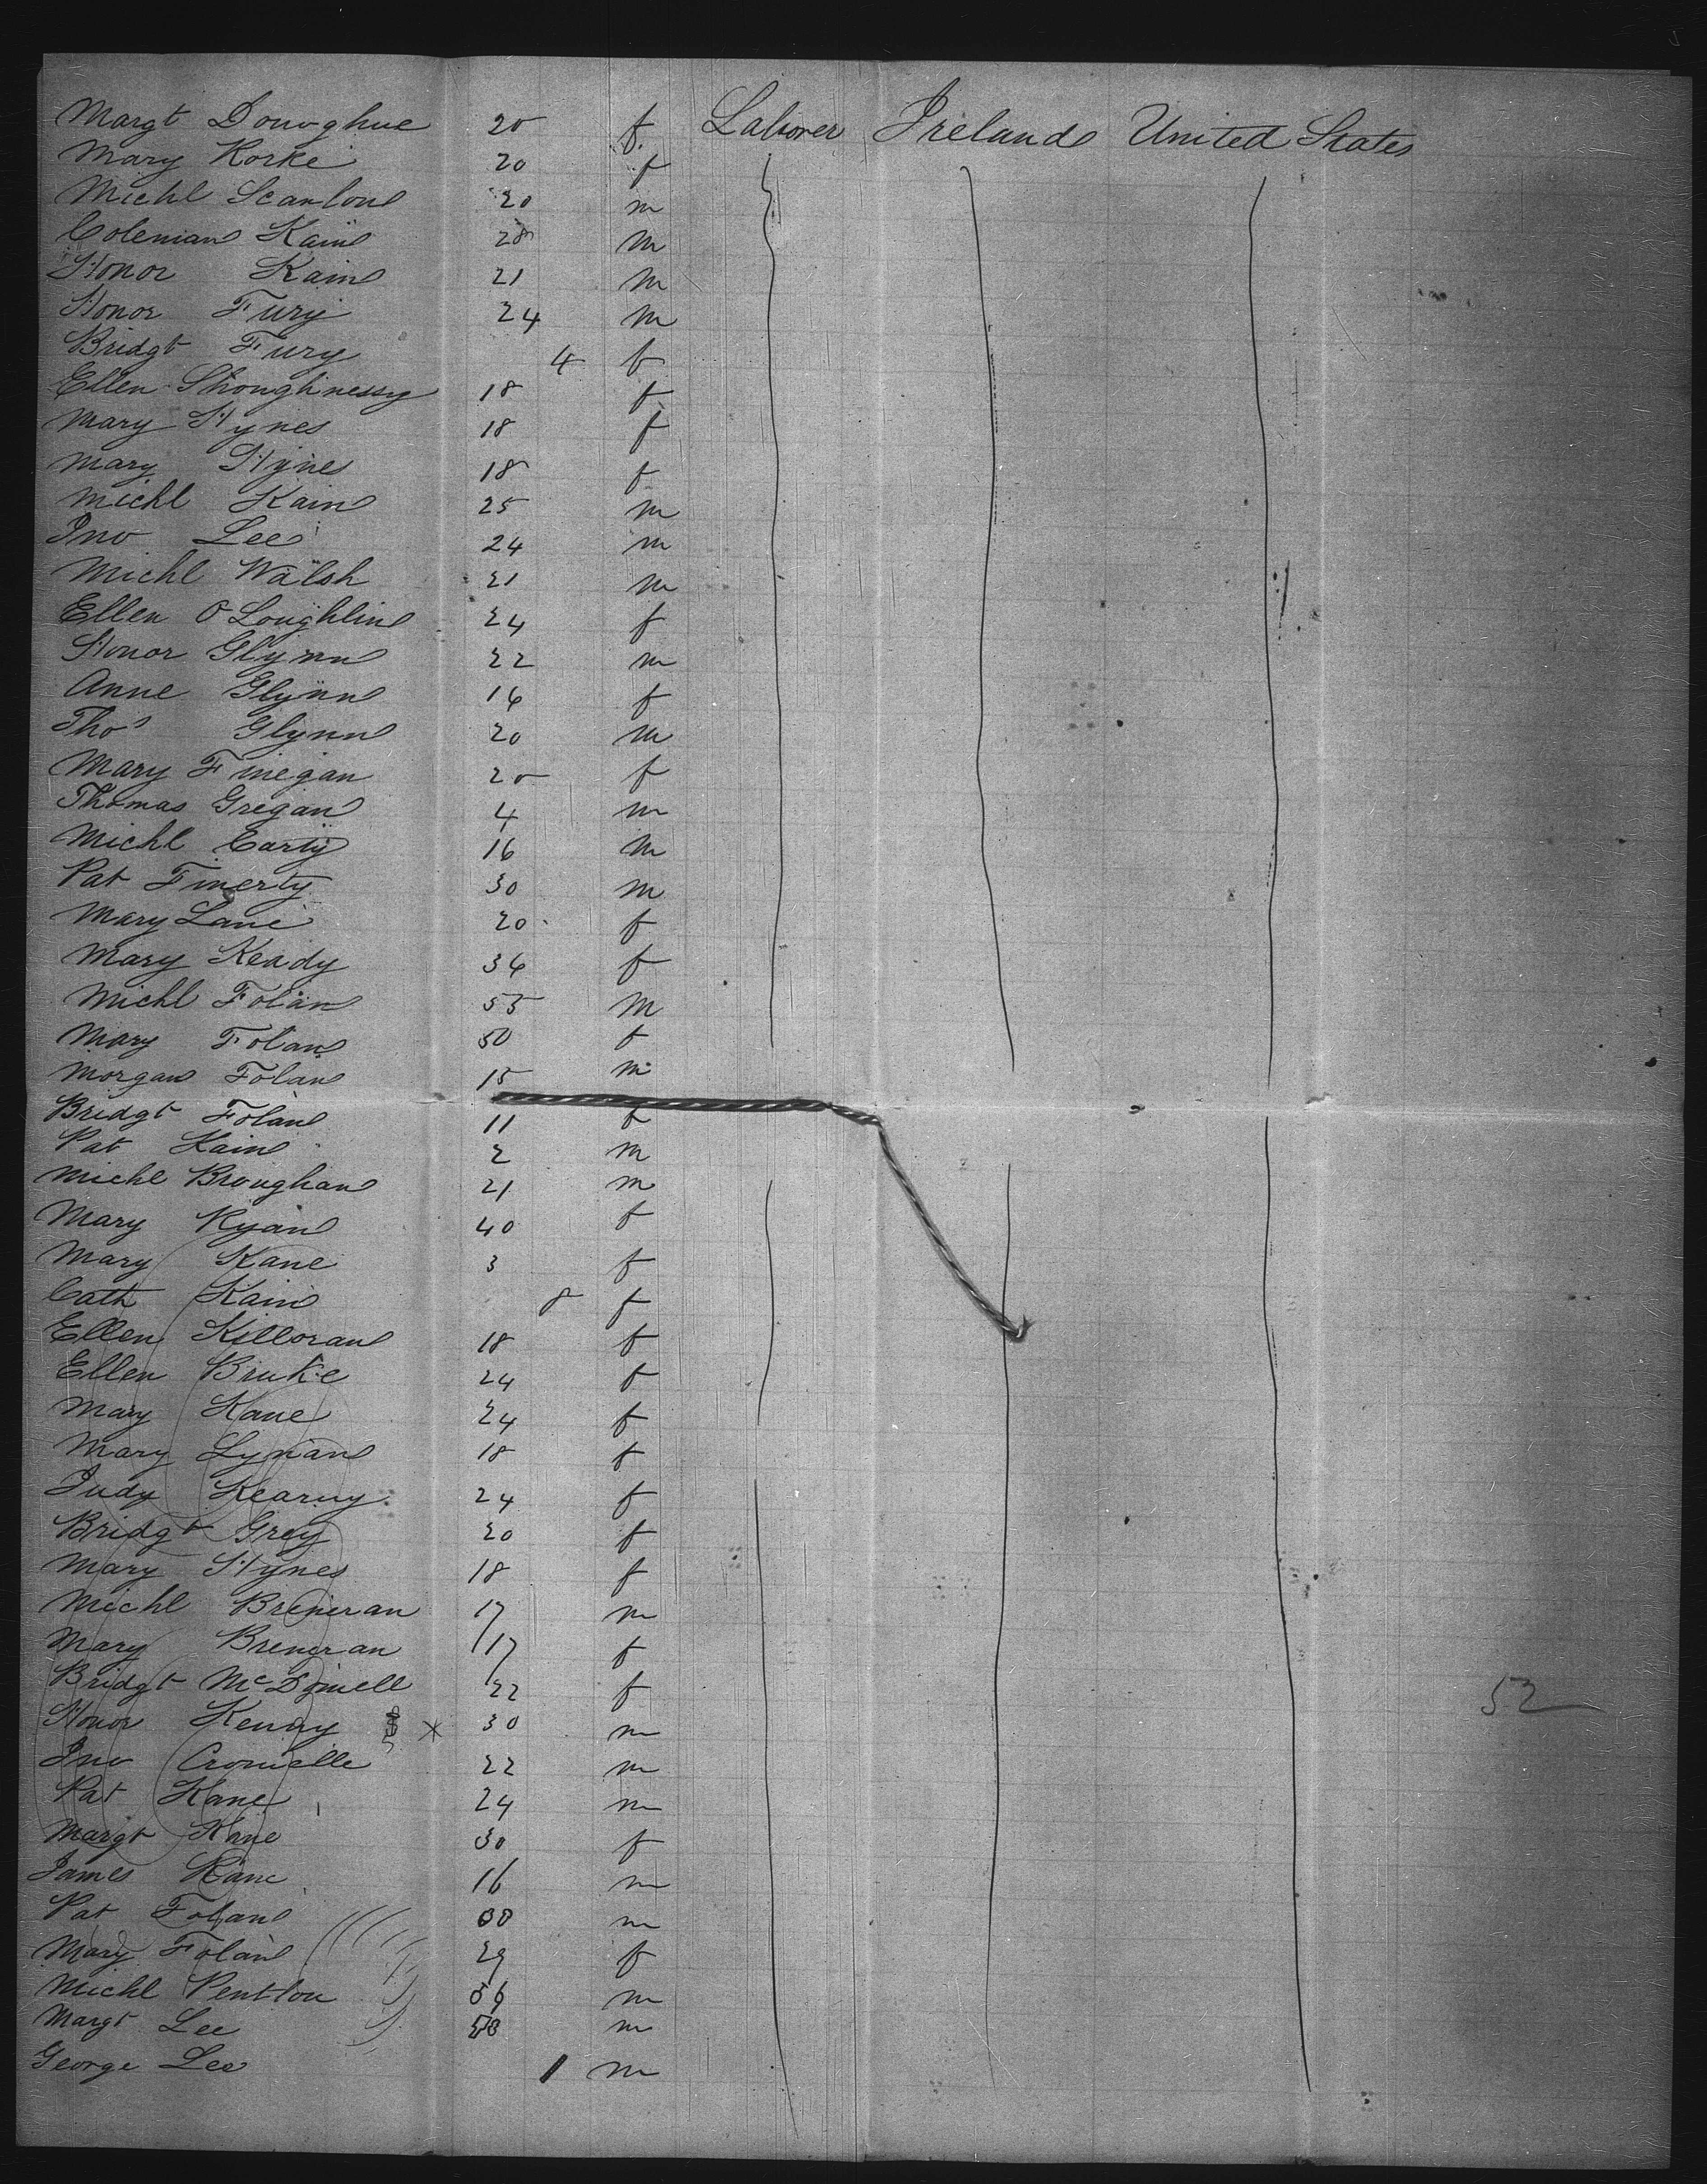 Margt Donoghue 20 f. Laborer Ireland United States
Mary Rorke 20 f
Michl Scanlon 20 m
Coleman Kain 28 m
Honor Kain 21 m
Honor Fury 24 m
Bridgt Fury 4 f
Ellen Shoughnessy 18 f
Mary Hynes 18 f
Mary Hynes 18 f
Michl Kain 25 m
Jno Lee 24 m
Michl Walsh 21 m
Ellen O Loughlin 24 f
Honor Glynn 22 m
Anne Glynn 16 f
Thos Glynn 20 m
Mary Finegan 20 f
Thomas Gregan 4 m
Michl Carty 16 m
Pat Finerty 30 m
Mary Lane 20 f
Mary Keady 36 f
Michl Folan 55 m
Mary Folan 50 f
Morgan Folan 15 m
Bridgt Folan 11 f
Pat Kain 2 m
Michl Broughan 21 m
Mary Ryan 40 f
Mary Kane 3 f
Cath Kain 8 f
Ellen Killoran 18 f
Ellen Bruke 24 f
Mary Kane 24 f
Mary Lynan 18 f
Judy Kearny 24 f
Bridgt Grey 20 f
Mary Hynes 18 f
Michl Breneran 17 m
Mary Breneran 17 f
Bridgt McDonnell 22 f 52
Honor Kenny * 30 m
Jno Cromelle 22 m
Pat Kane 24 m
Margt Kane 30 f
James Kane 16 m
Pat Folan m
Mary Folan 29 f
Michl Pentlon 56 m
Margt Lee m
George Lee 1 m